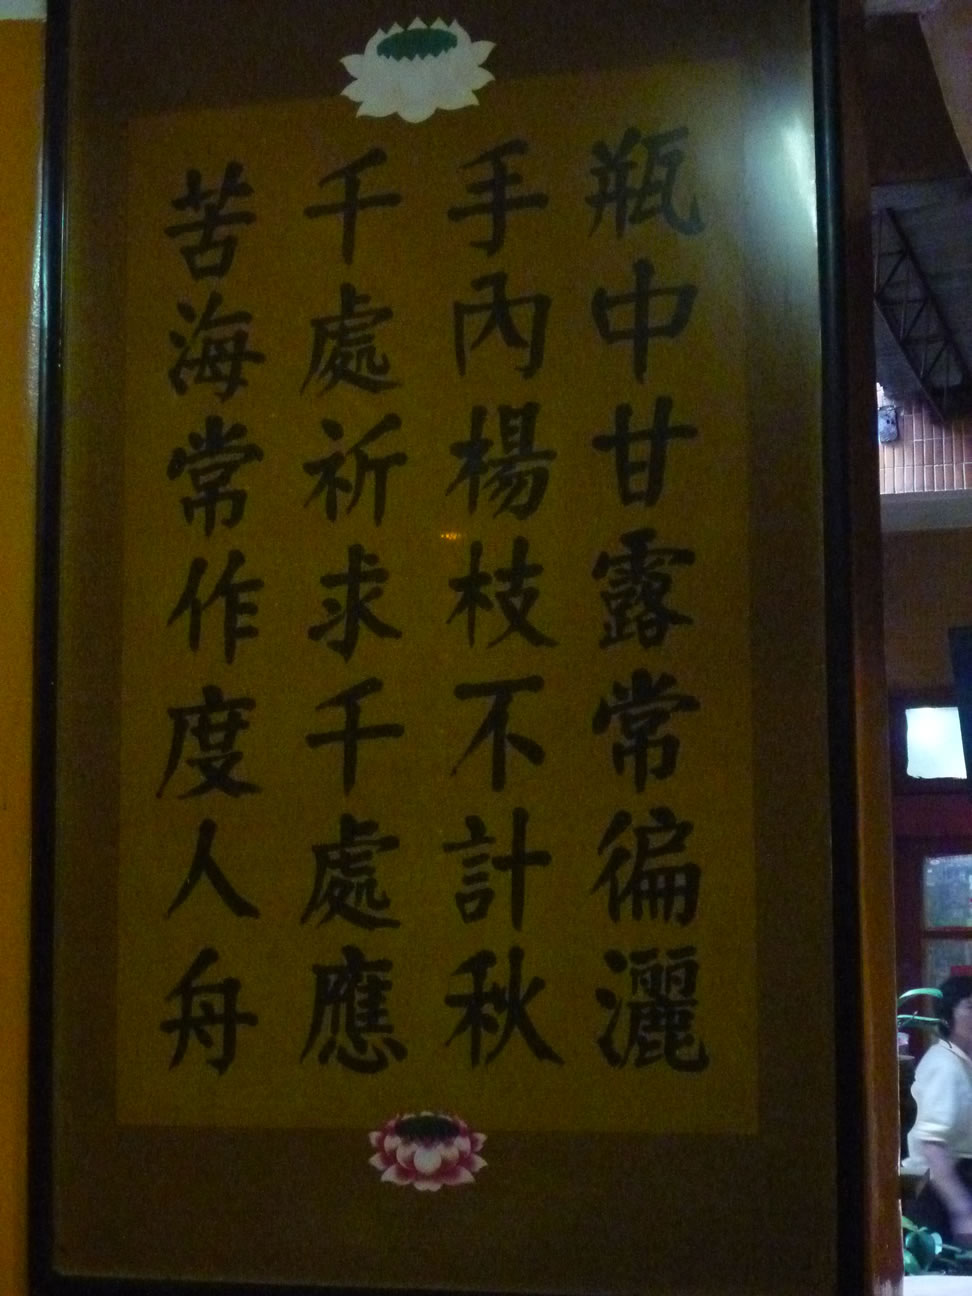 瓶中甘露常徧灑
手內楊枝不計秋
千處祈求千處應
苦海常作度人舟